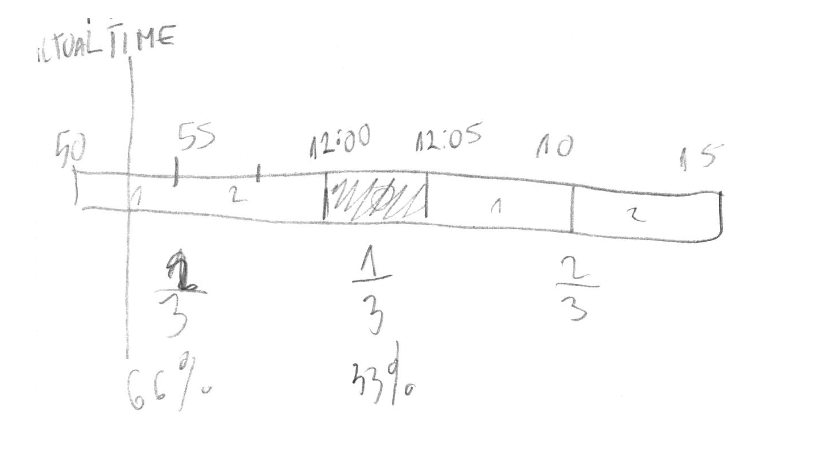 ACTUAL TIME
50 55 12:00 12:05 10 15
1 2 1 2
2 1 2
3 3 3
66% 33%